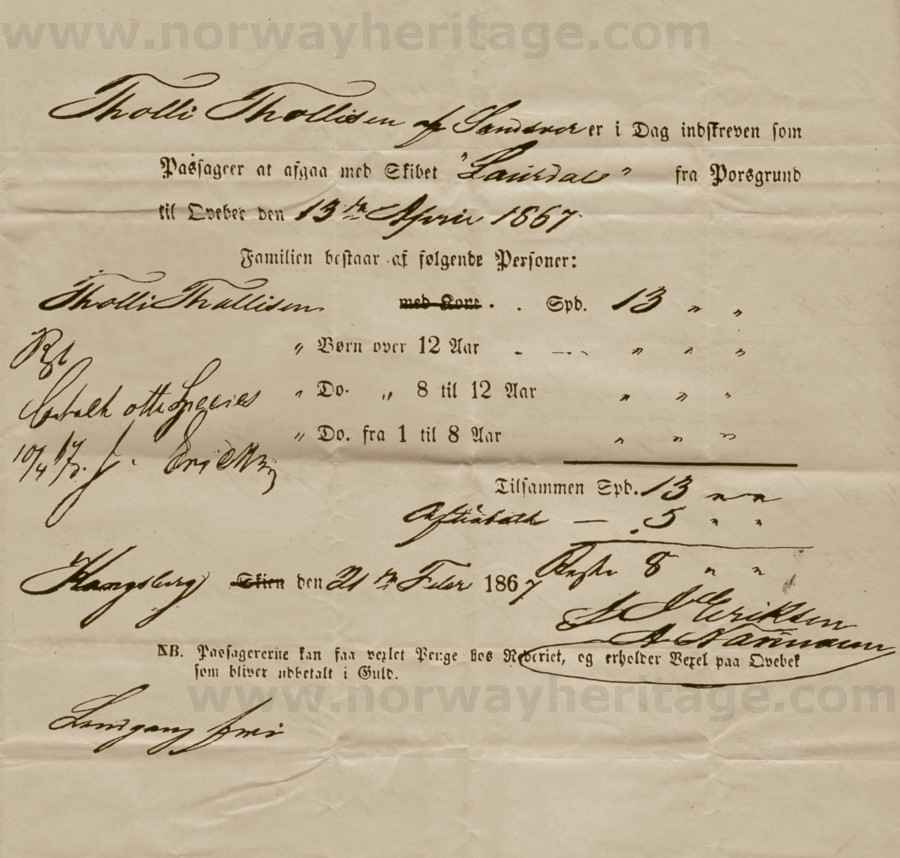 www.norwayheritage.com
Tholli Thollisen af Sandsver er i Dag indskreven som
Passageer at afgaa med Skibet "Laurdal" fra Porsgrund
til Qvebec den 13de April 1867
Familien bestaar af følgende Personer:
Tholli Thollisen med Kone . . Spd. 13 " "
" Børn over 12 Aar " " "
" Do. " 8 til 12 Aar " " "
Betalt otte Species
" Do. fra 1 til 8 Aar " " "
10/4 67 J. Eriksen
Tilsammen Spd. 13 " "
— 5 " "
Reste 8 " "
Kongsberg Skien den 21de Febr 1867
J Eriksen
A Narmann
NB. Passagererne kan faa vexlet Penge hos Rederiet, og erholder Vexel paa Qvebek
som bliver udbetalt i Guld.
www.norwayheritage.com
Landgang fri